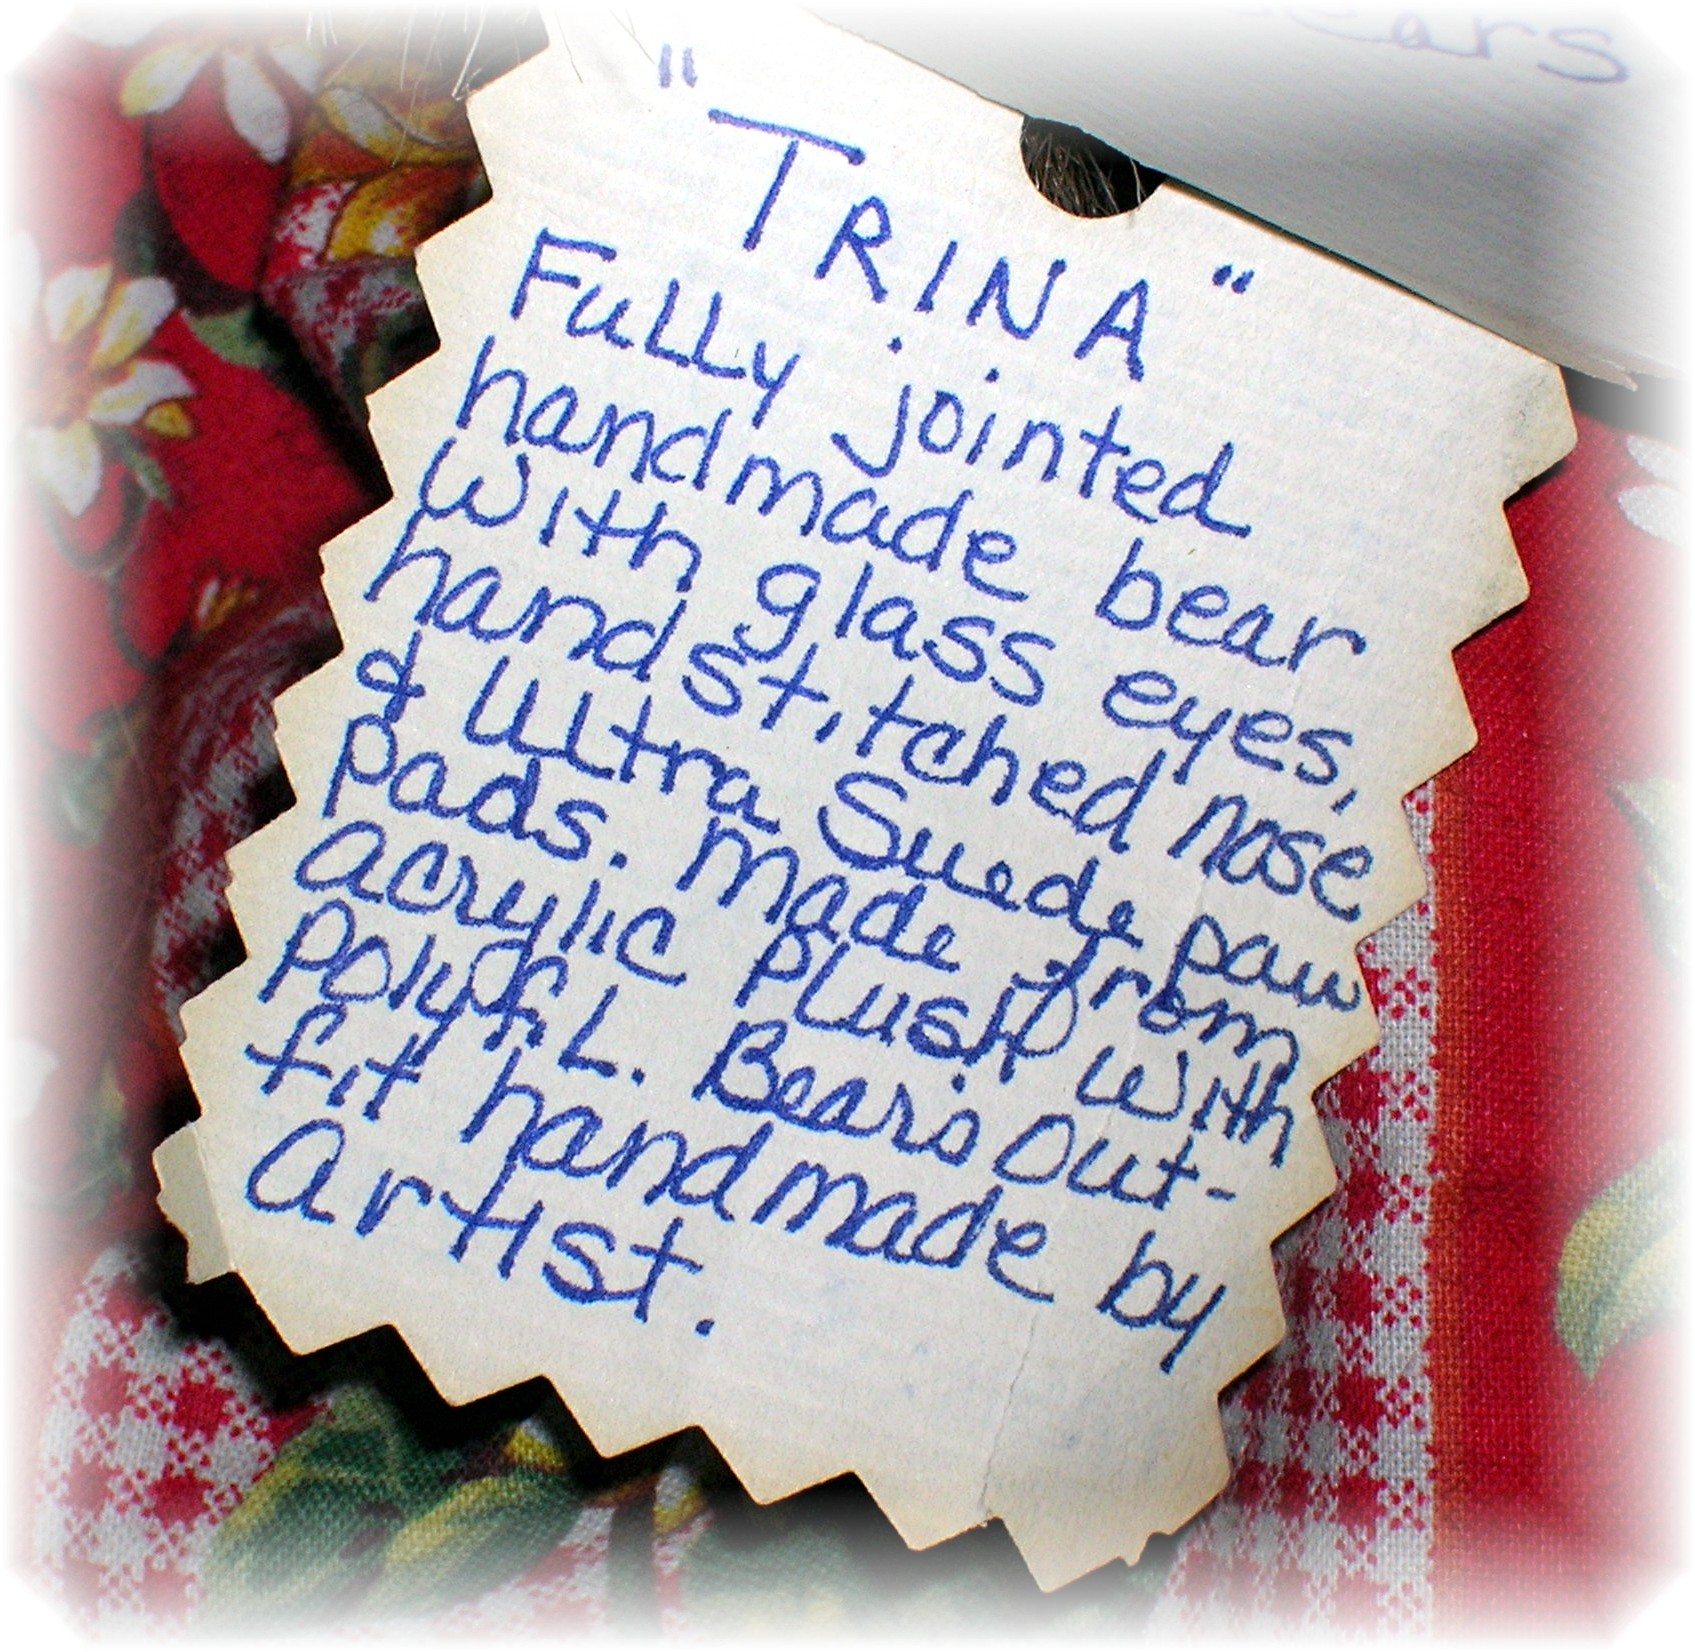 ears
"TRINA"
Fully jointed
handmade bear
with glass eyes,
hand stitched nose
& Ultra Suede paw
pads. Made from
acrylic plush with
Polyfil. Bear's out-
fit handmade by
artist.